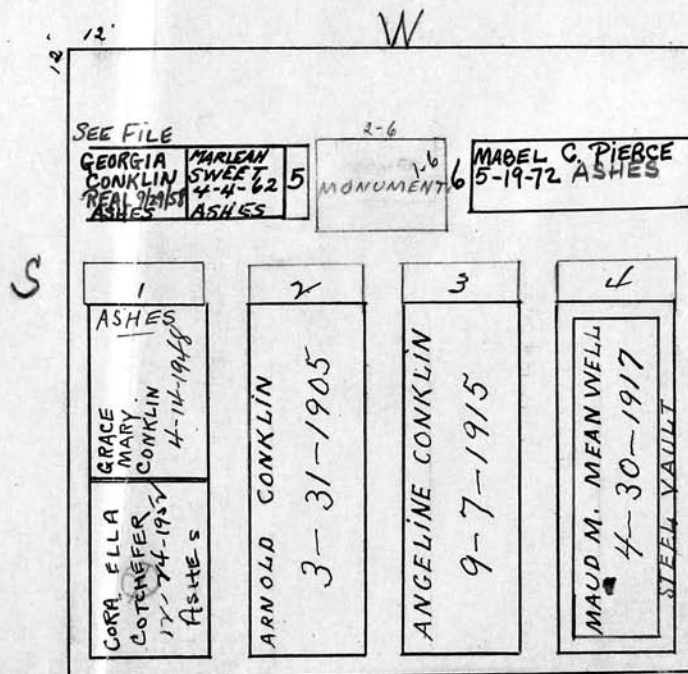 12
12
W
SEE FILE
GEORGIA
CONKLIN
REAL 9/29/58
ASHES
MARLEAN
SWEET
4-4-62
ASHES
5
2-6
1-6
MONUMENT
6
MABEL C. PIERCE
5-19-72 ASHES
S
1
ASHES
GRACE
MARY
CONKLIN
4-14-1948
CORA ELLA
COTCHEFER
12-24-1952
ASHES
2
ARNOLD CONKLIN
3-31-1905
3
ANGELINE CONKLIN
9-7-1915
4
MAUD M. MEANWELL
4-30-1917
STEEL VAULT